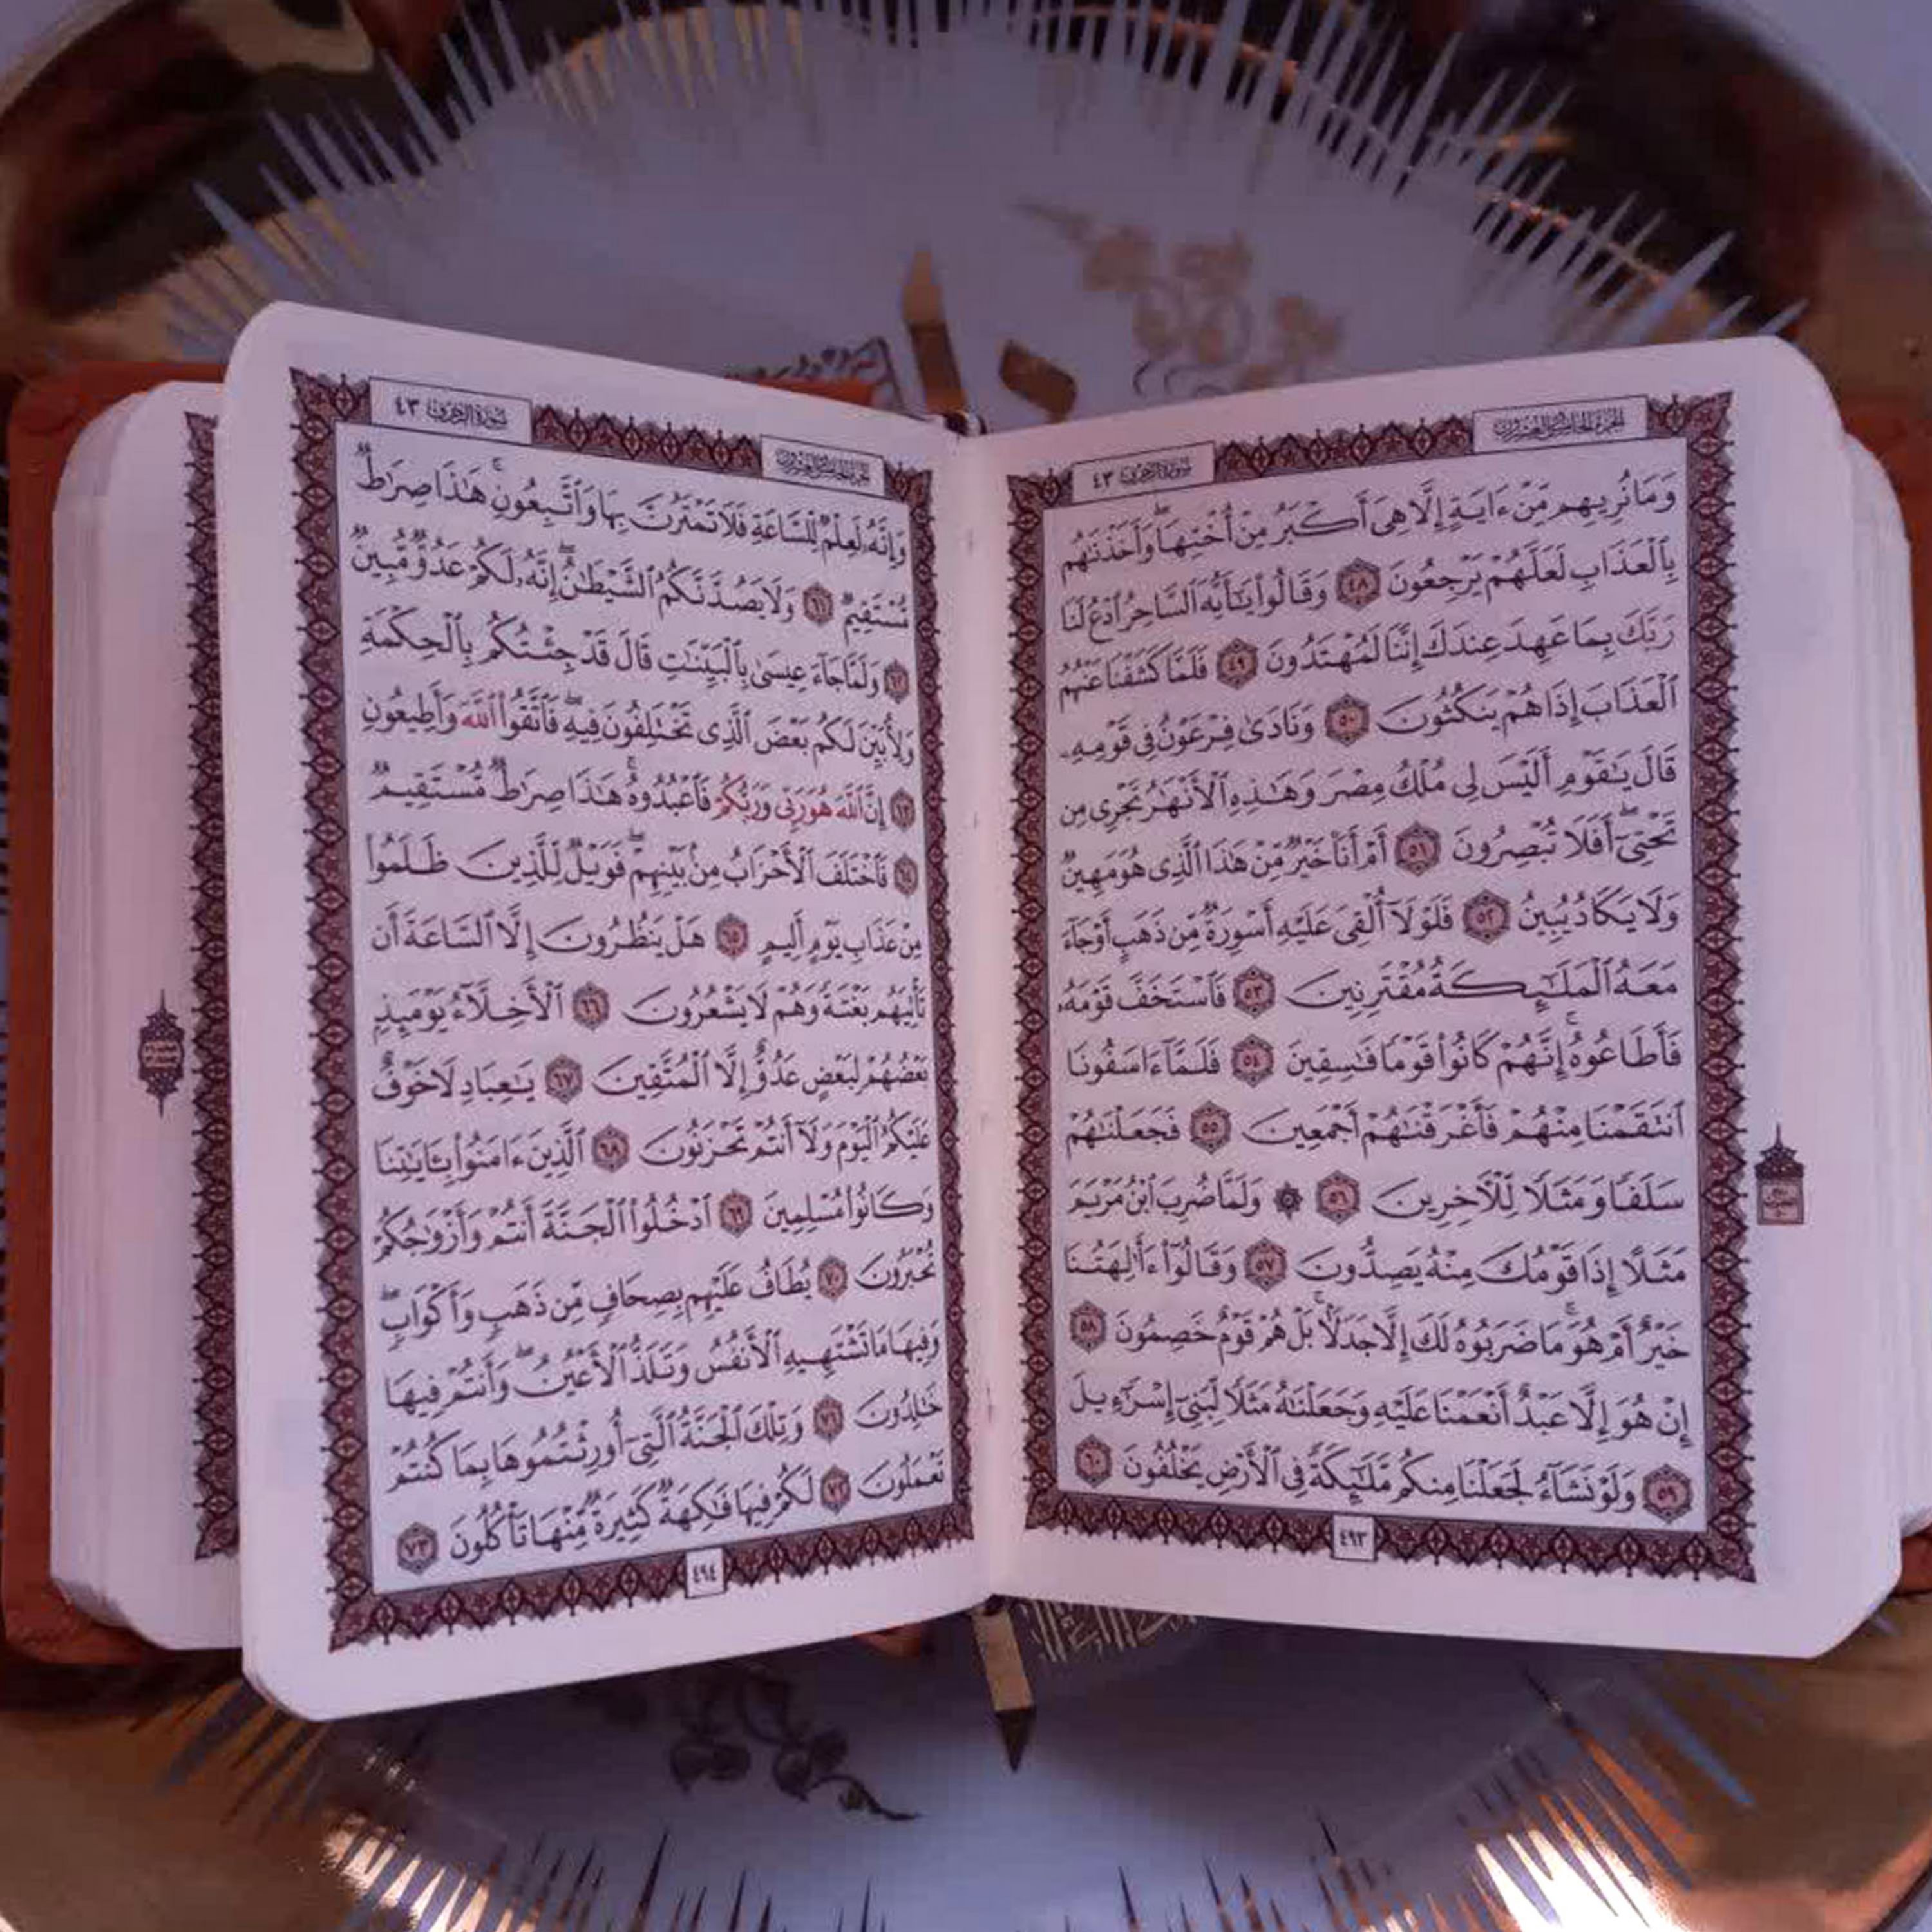 الجزء الخامس والعشرون
سورة الزخرف ٤٣
وَمَا نُرِيهِم مِّنْ ءَايَةٍ إِلَّا هِىَ أَكْبَرُ مِنْ أُخْتِهَا ۖ وَأَخَذْنَٰهُم
بِٱلْعَذَابِ لَعَلَّهُمْ يَرْجِعُونَ ٤٨ وَقَالُوا۟ يَٰٓأَيُّهَ ٱلسَّاحِرُ ٱدْعُ لَنَا
رَبَّكَ بِمَا عَهِدَ عِندَكَ إِنَّنَا لَمُهْتَدُونَ ٤٩ فَلَمَّا كَشَفْنَا عَنْهُمُ
ٱلْعَذَابَ إِذَا هُمْ يَنكُثُونَ ٥٠ وَنَادَىٰ فِرْعَوْنُ فِى قَوْمِهِۦ
قَالَ يَٰقَوْمِ أَلَيْسَ لِى مُلْكُ مِصْرَ وَهَٰذِهِ ٱلْأَنْهَٰرُ تَجْرِى مِن
تَحْتِىٓ ۖ أَفَلَا تُبْصِرُونَ ٥١ أَمْ أَنَا۠ خَيْرٌ مِّنْ هَٰذَا ٱلَّذِى هُوَ مَهِينٌ
وَلَا يَكَادُ يُبِينُ ٥٢ فَلَوْلَآ أُلْقِىَ عَلَيْهِ أَسْوِرَةٌ مِّن ذَهَبٍ أَوْ جَآءَ
مَعَهُ ٱلْمَلَٰٓئِكَةُ مُقْتَرِنِينَ ٥٣ فَٱسْتَخَفَّ قَوْمَهُۥ
فَأَطَاعُوهُ ۚ إِنَّهُمْ كَانُوا۟ قَوْمًا فَٰسِقِينَ ٥٤ فَلَمَّآ ءَاسَفُونَا
ٱنتَقَمْنَا مِنْهُمْ فَأَغْرَقْنَٰهُمْ أَجْمَعِينَ ٥٥ فَجَعَلْنَٰهُمْ
سَلَفًا وَمَثَلًا لِّلْءَاخِرِينَ ٥٦ ۞ وَلَمَّا ضُرِبَ ٱبْنُ مَرْيَمَ
مَثَلًا إِذَا قَوْمُكَ مِنْهُ يَصِدُّونَ ٥٧ وَقَالُوٓا۟ ءَأَٰلِهَتُنَا
خَيْرٌ أَمْ هُوَ ۚ مَا ضَرَبُوهُ لَكَ إِلَّا جَدَلًۢا ۚ بَلْ هُمْ قَوْمٌ خَصِمُونَ ٥٨
إِنْ هُوَ إِلَّا عَبْدٌ أَنْعَمْنَا عَلَيْهِ وَجَعَلْنَٰهُ مَثَلًا لِّبَنِىٓ إِسْرَٰٓءِيلَ
٥٩ وَلَوْ نَشَآءُ لَجَعَلْنَا مِنكُم مَّلَٰٓئِكَةً فِى ٱلْأَرْضِ يَخْلُفُونَ ٦٠
٤٩٣
الجزء الخامس والعشرون
سورة الزخرف ٤٣
وَإِنَّهُۥ لَعِلْمٌ لِّلسَّاعَةِ فَلَا تَمْتَرُنَّ بِهَا وَٱتَّبِعُونِ ۚ هَٰذَا صِرَٰطٌ
مُّسْتَقِيمٌ ٦١ وَلَا يَصُدَّنَّكُمُ ٱلشَّيْطَٰنُ ۖ إِنَّهُۥ لَكُمْ عَدُوٌّ مُّبِينٌ
٦٢ وَلَمَّا جَآءَ عِيسَىٰ بِٱلْبَيِّنَٰتِ قَالَ قَدْ جِئْتُكُم بِٱلْحِكْمَةِ
وَلِأُبَيِّنَ لَكُم بَعْضَ ٱلَّذِى تَخْتَلِفُونَ فِيهِ ۖ فَٱتَّقُوا۟ ٱللَّهَ وَأَطِيعُونِ
٦٣ إِنَّ ٱللَّهَ هُوَ رَبِّى وَرَبُّكُمْ فَٱعْبُدُوهُ ۚ هَٰذَا صِرَٰطٌ مُّسْتَقِيمٌ
٦٤ فَٱخْتَلَفَ ٱلْأَحْزَابُ مِنۢ بَيْنِهِمْ ۖ فَوَيْلٌ لِّلَّذِينَ ظَلَمُوا۟
مِنْ عَذَابِ يَوْمٍ أَلِيمٍ ٦٥ هَلْ يَنظُرُونَ إِلَّا ٱلسَّاعَةَ أَن
تَأْتِيَهُم بَغْتَةً وَهُمْ لَا يَشْعُرُونَ ٦٦ ٱلْأَخِلَّآءُ يَوْمَئِذٍۭ
بَعْضُهُمْ لِبَعْضٍ عَدُوٌّ إِلَّا ٱلْمُتَّقِينَ ٦٧ يَٰعِبَادِ لَا خَوْفٌ
عَلَيْكُمُ ٱلْيَوْمَ وَلَآ أَنتُمْ تَحْزَنُونَ ٦٨ ٱلَّذِينَ ءَامَنُوا۟ بِـَٔايَٰتِنَا
وَكَانُوا۟ مُسْلِمِينَ ٦٩ ٱدْخُلُوا۟ ٱلْجَنَّةَ أَنتُمْ وَأَزْوَٰجُكُمْ
تُحْبَرُونَ ٧٠ يُطَافُ عَلَيْهِم بِصِحَافٍ مِّن ذَهَبٍ وَأَكْوَابٍ ۖ
وَفِيهَا مَا تَشْتَهِيهِ ٱلْأَنفُسُ وَتَلَذُّ ٱلْأَعْيُنُ ۖ وَأَنتُمْ فِيهَا
خَٰلِدُونَ ٧١ وَتِلْكَ ٱلْجَنَّةُ ٱلَّتِىٓ أُورِثْتُمُوهَا بِمَا كُنتُمْ
تَعْمَلُونَ ٧٢ لَكُمْ فِيهَا فَٰكِهَةٌ كَثِيرَةٌ مِّنْهَا تَأْكُلُونَ ٧٣
٤٩٤